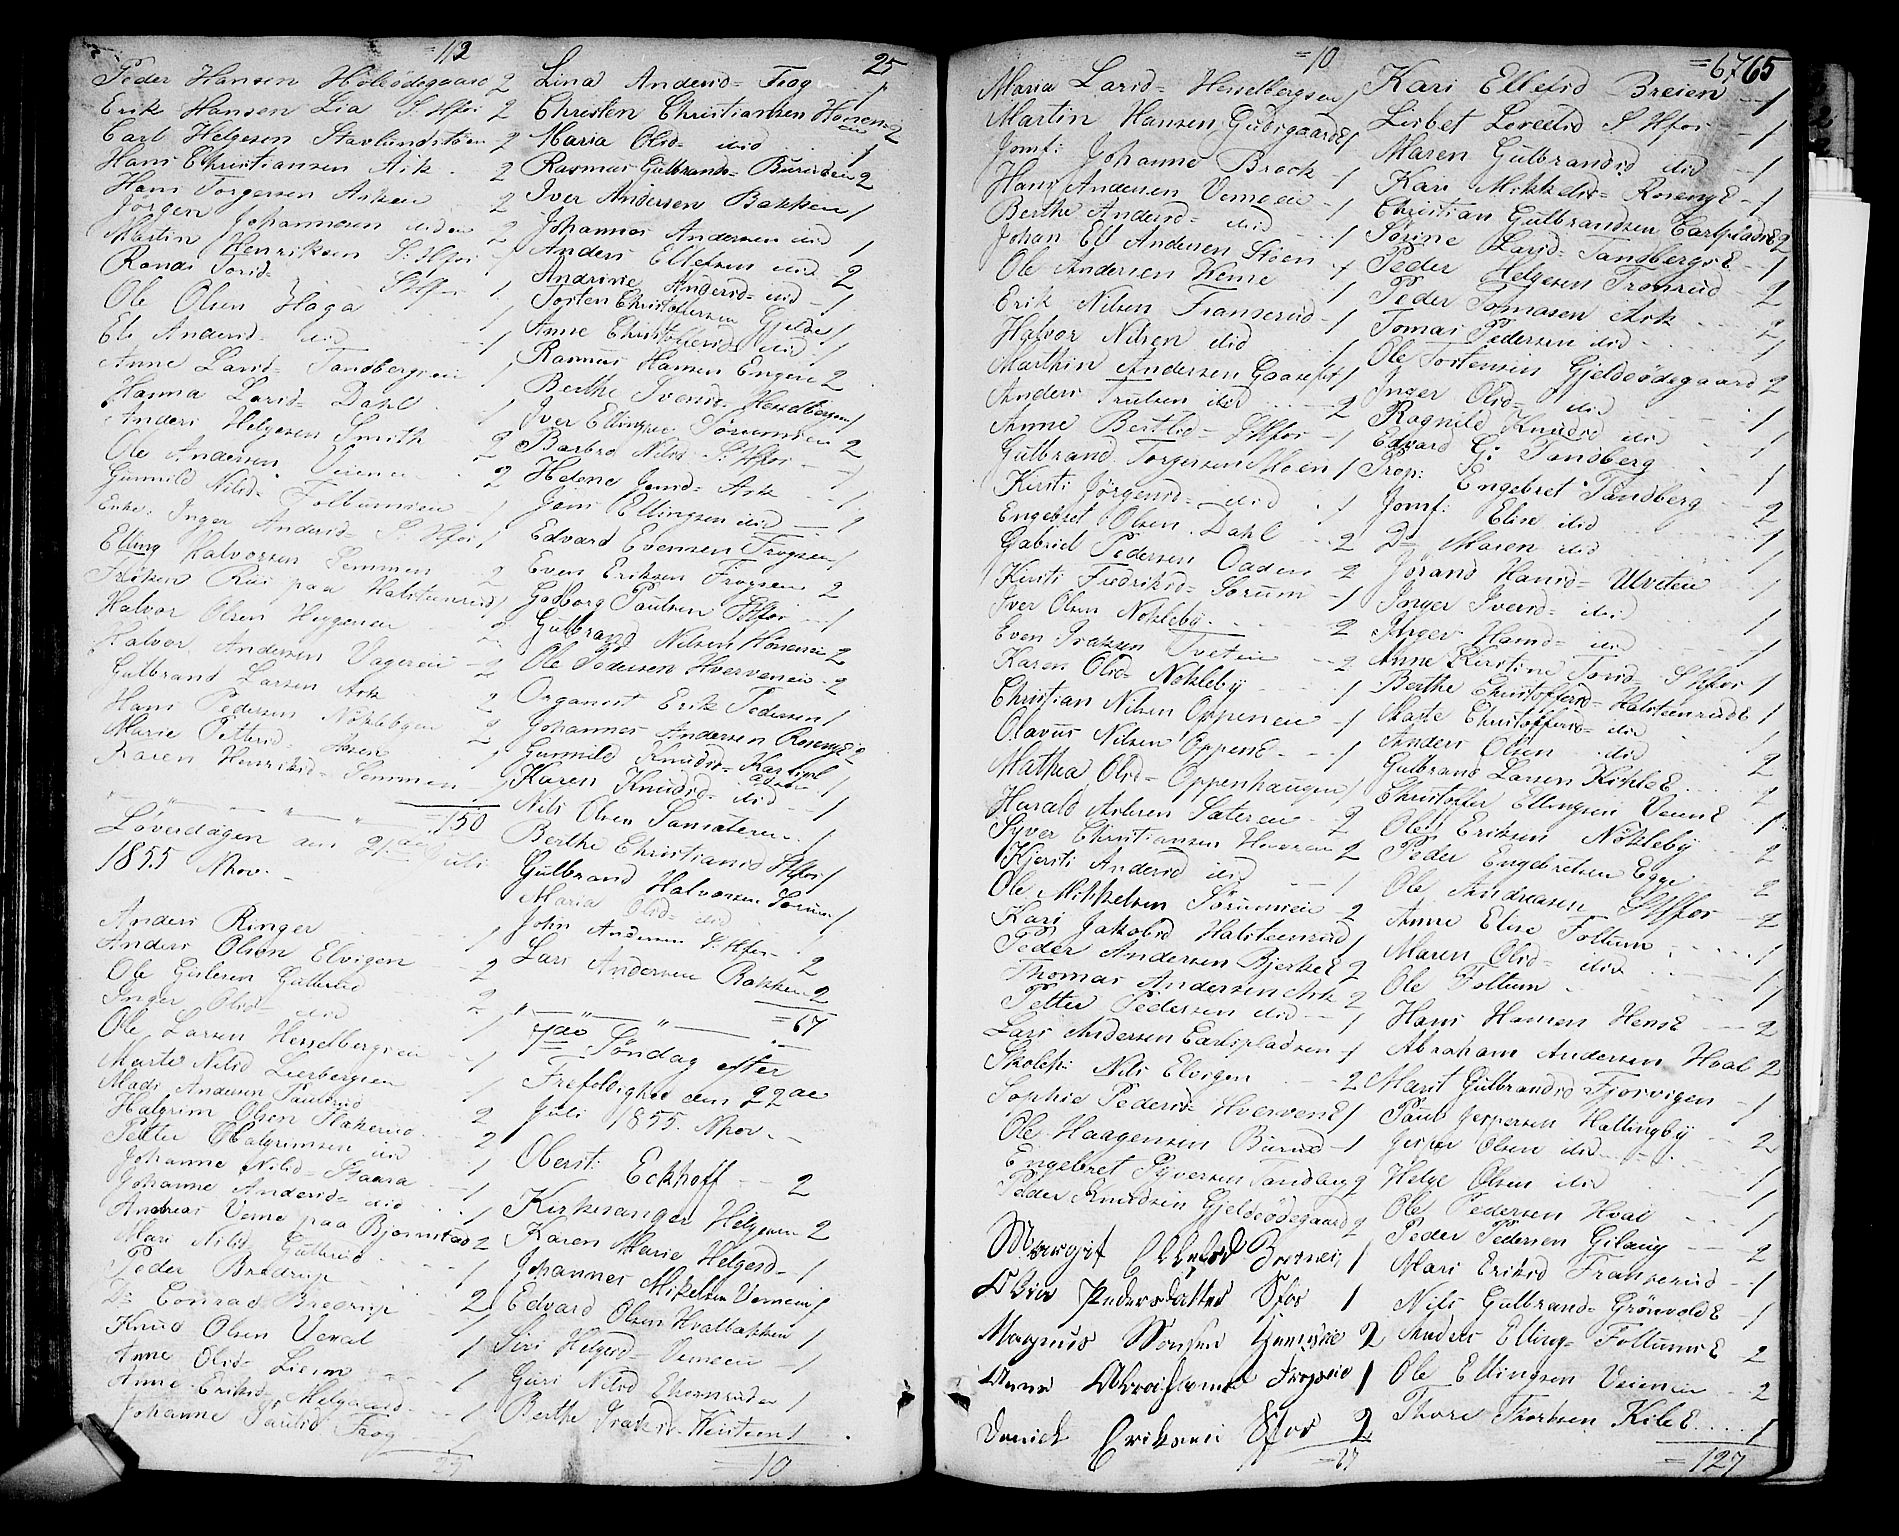 =113
Peder Hansen Höleödegaard 2
Erik Hansen Lia S. Hfos 2
Carl Helgesen Stavlundstöen 2
Hans Christiansen Ask 2
Hans Torgersen Asken 2
Jörgen Johannesen dsden 2
Martin Henriksen S. Hfos 1
Randi Torsd= SHfos 1
Ole Olsen Haga 1
Eli Andersd dsd 1
Anne Larsd= Tandbergseie 1
Hanna Larsd= Dahl 1
Anders Helgesen Smith 2
Ole Andersen Veieneie 2
Gunnild Nilsd= Foltumseie 1
Enke: Inger Andersd= S. Hfos 1
Elling Halvorsen Semmen 2
Fröken Rasi paa Halsteenrud 1
Halvor Olsen Heggeneie 2
Halvor Andersen Vagereie 2
Gulbrand Larsen Ask 2
Hans Pedersen Nökleby 2
Marie Pettersd= Aasen 1
Karen Henriksd= Semmen 1
=150
Löverdagen den 21de Juli
1855 Nhov.
Anders Ringer 1
Anders Olsen Elvigen 2
Ole Gulesen Gullerud 2
Inger Olsd= dsd 1
Ole Larsen Hesselbergseie 1
Marte Nilsd Lierbergseie 1
Mads Andersen Paulsrud 2
Halgrim Olsen Stakerud 2
Petter Halgrimsen dsd 1
Johanne Nilsd= Haara 1
Johanne Andersd= dsd 1
Andreas Veme paa Bjornstad 2
Mari Nilsd Gullerud 1
Peder Bredrup 2
Do Conrad Bredrup 1
Knud Olsen Veval 1
Anne Olsd= Lierm 1
Anne Eriksd Melgaard 1
Johanne Paulsd Frog 1
25
25
Lina Andersd= Frog 1
Christen Christiansen Honenseie 2
Maria Olsd= dsd 1
Rasmus Gulbrands= Burudeie 2
Iver Andersen Bakken 1
Johannes Andersen dsd 1
Anders Ellefsen dsd 2
Andrine Andersd= dsd 1
Torsten Christoffersen Gjelde 1
Anne Christoffersd dsd 1
Rasmus Hansen Engen 2
Berthe Svensd= Hesselbergseie 1
Iver Ellingsen Sörumseie 2
Barbro Nilsd S. Hfos 1
Helene Jensd= Ask 1
Jens Ellingsen dsd 1
Edvard Evensen Frogseie 1
Even Eriksen Frogseie 2
Godborg Paulsen SHfos 1
Gulbrand Nilsen Hönenseie 2
Ole Pedersen Hverveneie 2
Organist Erik Pedersen 1
Johannes Andersen RosengE 2
Gunnild Knudsd= Karlspladsen 1
Karen Knudsd= dsd 1
Nils Olsen Samsateren 1
Berthe Christiansd SHfos 1
Gulbrand Halvorsen Sorum 1
Maria Olsd= dsd
John Andersen S. Hfos 2
Lars Andersen Bakken 2
=67
7de Söndag efter
Trefoldighed den 22de
Juli 1855. Nhov.
Oberst: Eckhoff 2
Kirkesanger Helgesen 2
Karen Marie Helgesd= 1
Johannes Mikelsen Vemeeie 1
Edvard Olsen Hvalbakken 1
Siri Helgesd= Vemeeie 1
Guri Nilsd Ekornrudeie 1
Berthe Isaksd= Keisteen 1
10
=10
Maria Larsd= Hesselbergseie 1
Martin Hansen GudsgaardE 1
Jomf: Johanne Brock 1
Hans Andersen Vemeeie 1
Berthe Andersd= dsd 1
Johan Ell Andersen Stöen 1
Ole Andersen Veme 1
Erik Nilsen Franserud 1
Halvor Nilsen dsd 1
Marthin Andersen Gaasefet 1
Anders Trulsen dsd 2
Anne Bertilsd= SHfos 1
Gulbrand Torgersen Moen 1
Kirsti Jörgensd= dsd 1
Engebret Olsen Dahl 2
Gabriel Pedersen Oaden 2
Kirsti Fredriksd= Sorum 1
Iver Olsen Nökleby 2
Even Isaksen Tveteie 2
Karen Olsd= Nökleby 1
Christian Nilsen Oppeneie 1
Olavus Nilsen OppenE 1
Mathea Olsd= Oppenhaugen 1
Harald Aslesen Sateren 2
Syver Christiansen Hvereneie 2
Kjersti Andersd dsd 1
Ole Mikkelsen Sörumseie 2
Kari Jakobsd Halsteenrud 1
Peder Andersen BjerkeE 2
Thomas Andersen Ask 2
Petter Pedersen dsd 1
Lars Andersen Earlspladsen 1
Skoleh: Nils Elvigen 2
Sophie Pedersd= HvervenE 1
Ole Haagensen Burud 1
Engebret Syversen Tandberg 2
Peder Knudsen Gjeldeödegaard 2
Margit Ellefsd Borneie 1
Olia Pedersdatter Sfos 1
Magnus Monsen 2
Anne Abrahamsd Frogseie 1
Daniel Eriksen Sfos 2
=67
=67 65
Kari Ellefsd Breien 1
Lisbet Levelsd S Hfos 1
Maren Gulbrandsd dsd 1
Kari Mikkelsd= RosengE 1
Christian Gulbrandsen EarlspladsE 2
Sörine Larsd= TandbergsE 1
Peder Helgesen Tronrud 2
Peder Tomasen Ask 2
Tomas Pedersen dsd 1
Ole Torstensen Gjeldeödegaard 2
Inger Olsd= dsd 1
Ragnild Knudsd dsd 1
Edvard G: Tandberg 1
Prop: S. Engebret Tandberg 2
Jomf: Elise dsd 1
Do Maren dsd 1
Jörand Hansd= Ulveteie 1
Inger Iversd= dsd 1
Inger Hansd= dsd 1
Anne Kirstine Torsd= SHfos 1
Berthe Christoffersd= HalsteenrudE 1
Marte Christoffersd= dsd 1
Anders Olsen dsd 2
Gulbrand Larsen KihleE 2
Christoffer Ellingsen VeienE 1
Ole Eriksen Nökleby 2
Peder Engebretsen Egge 2
Ole Andreasen SHfos 2
Anne Elise Foltum 1
Maren Olsd= dsd 1
Ole Foltum 1
Hans Hansen HensE 2
Abraham Andersen Hval 2
Marit Gulbrandsd Fjorvigen 1
Paul Jespersen Hallingby 2
Jesper Olsen dsd 1
Helge Olsen dsd 1
Ole Pedersen Hval 1
Peder Pedersen Gilaug 2
Mari Eriksd Franserud 1
Nils Gulbrands= GrönvoldE 1
Anders Elling= FoltumsE 2
Ole Ellingsen Veieneie 2
Thore Thorksen KileE 1
=127